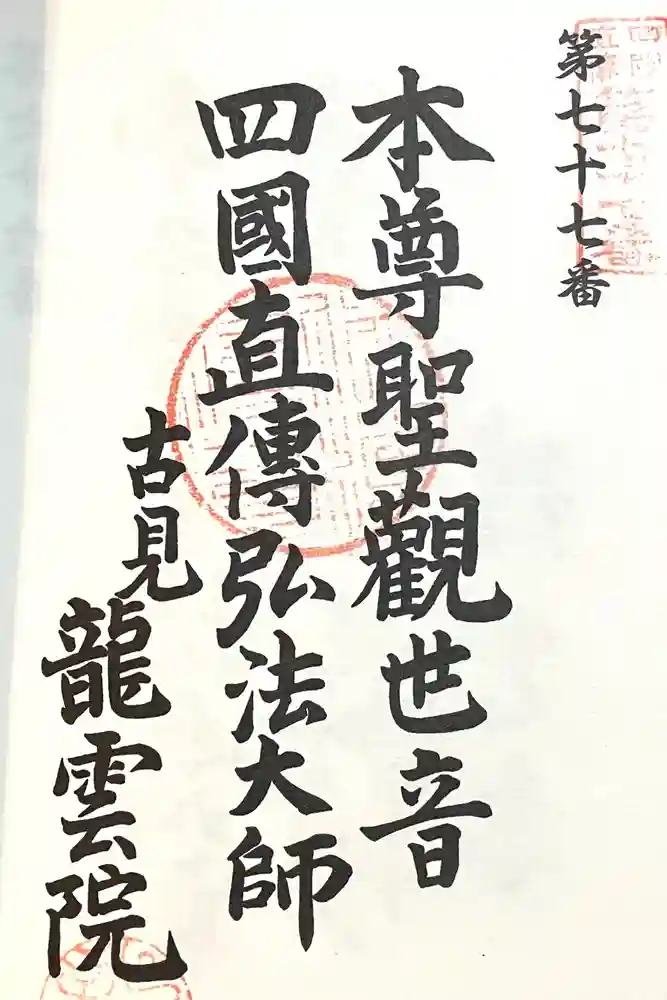 第七十七番
本尊聖觀世音
四國直傳弘法大師
古見
龍雲院